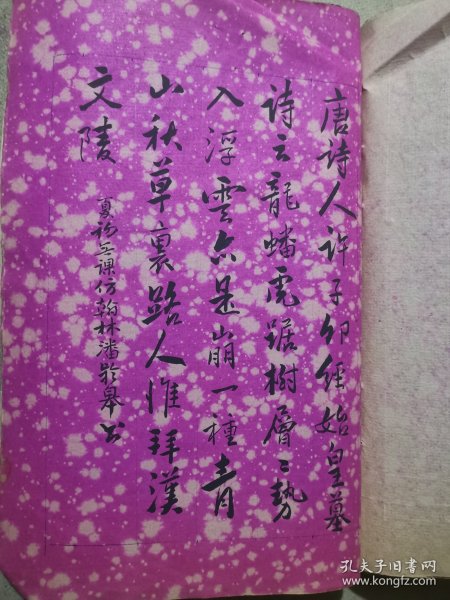 唐詩人許子卯經始皇墓
詩云龍蟠虎踞樹層〻勢
入浮雲亦是崩一種青
山秋草裏路人惟拜漢
文陵
夏初課仿翰林潘齡皋书
孔夫子旧书网
www.kongfz.com